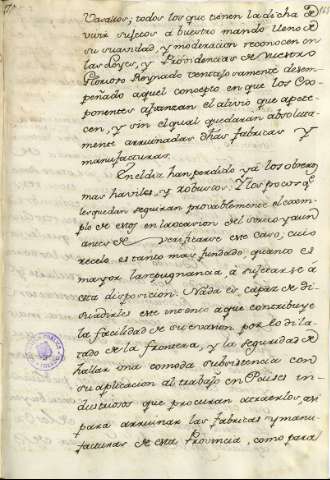 Vasallos; todos los que tienen la dicha de
vivir sujetos a buestro mando lleno de
su suavidad, y moderacion reconocen en
las Leyes, y Providencias de Vuestro
Glorioso Reynado ventajosamente desem-
peñado aquel concepto en que los Ex-
ponentes afianzan el alivio que apete-
cen, y sin el qual quedaran absoluta-
mente arruinadas dhas fabricas y
manufacturas.
En el dia han perdido ya los obreros
mas haviles, y robustos: Y los pocos qe
les quedan seguiran provablemente el exem-
plo de estos en la ocasion del sorteo y aun
antes de verificarse este caso; cuio
recelo es tanto mas fundado, quanto es
mayor la repugnancia á sujetarse á
esta disposicion. Nada es capaz de di-
suadirles este intento a que contribuye
la facilidad de su evasion por lo dila-
tado de la frontera, y la seguridad de
hallar una comoda subsistencia con
su aplicacion al trabajo en Paises in-
dustriosos que procuran atraerlos, asi
para arruinar las fabricas y manu-
facturas de esta Provincia, como para